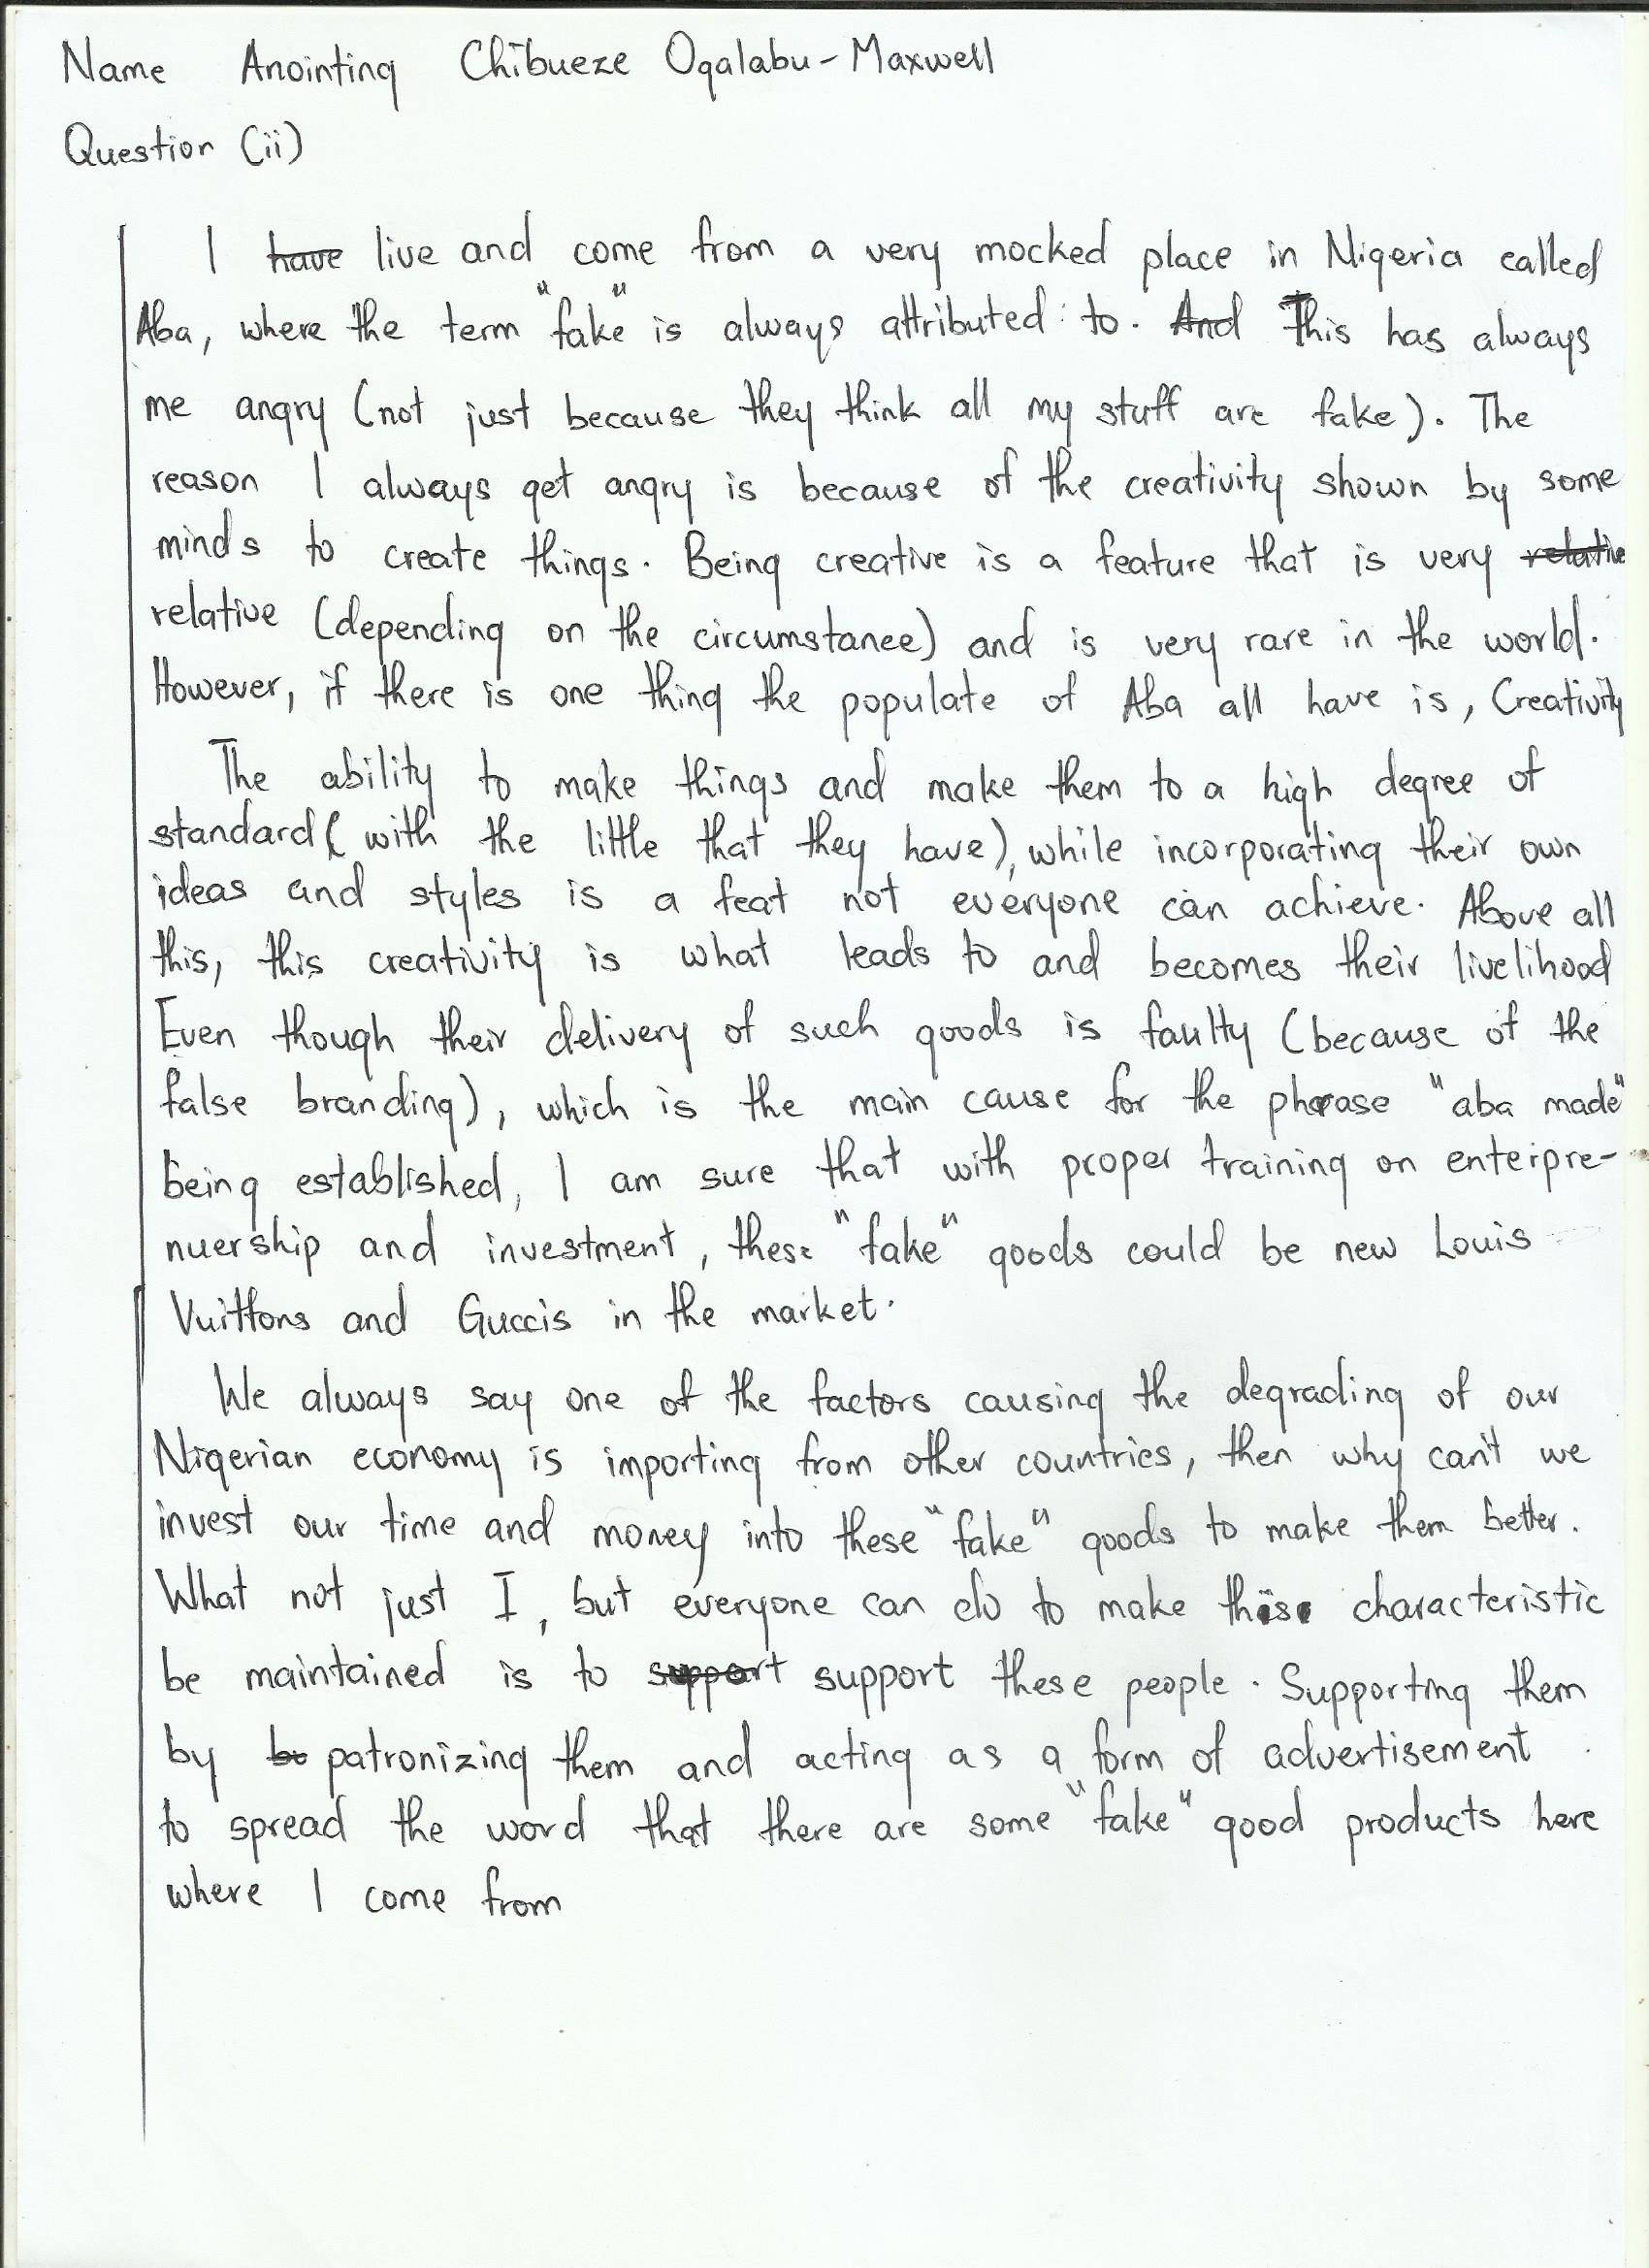 Name Anointing Chibueze Ogalabu-Maxwell
Question (ii)
I have live and come from a very mocked place in Nigeria called
Aba, where the term "fake" is always attributed to. And This has always
me angry (not just because they think all my stuff are fake). The
reason I always get angry is because of the creativity shown by some
minds to create things. Being creative is a feature that is very relative
relative (depending on the circumstance) and is very rare in the world.
However, if there is one thing the populate of Aba all have is, Creativity
The ability to make things and make them to a high degree of
standard (with the little that they have), while incorporating their own
ideas and styles is a feat not everyone can achieve. Above all
this, this creativity is what leads to and becomes their livelihood
Even though their delivery of such goods is faulty (because of the
false branding), which is the main cause for the phrase "aba made"
being established, I am sure that with proper training on enterpre-
nuership and investment, these "fake" goods could be new Louis
Vuittons and Guccis in the market.
We always say one of the factors causing the degrading of our
Nigerian economy is importing from other countries, then why can't we
invest our time and money into these "fake" goods to make them better.
What not just I, but everyone can do to make this characteristic
be maintained is to support support these people. Supporting them
by be patronizing them and acting as a form of advertisement
to spread the word that there are some "fake" good products here
where I come from